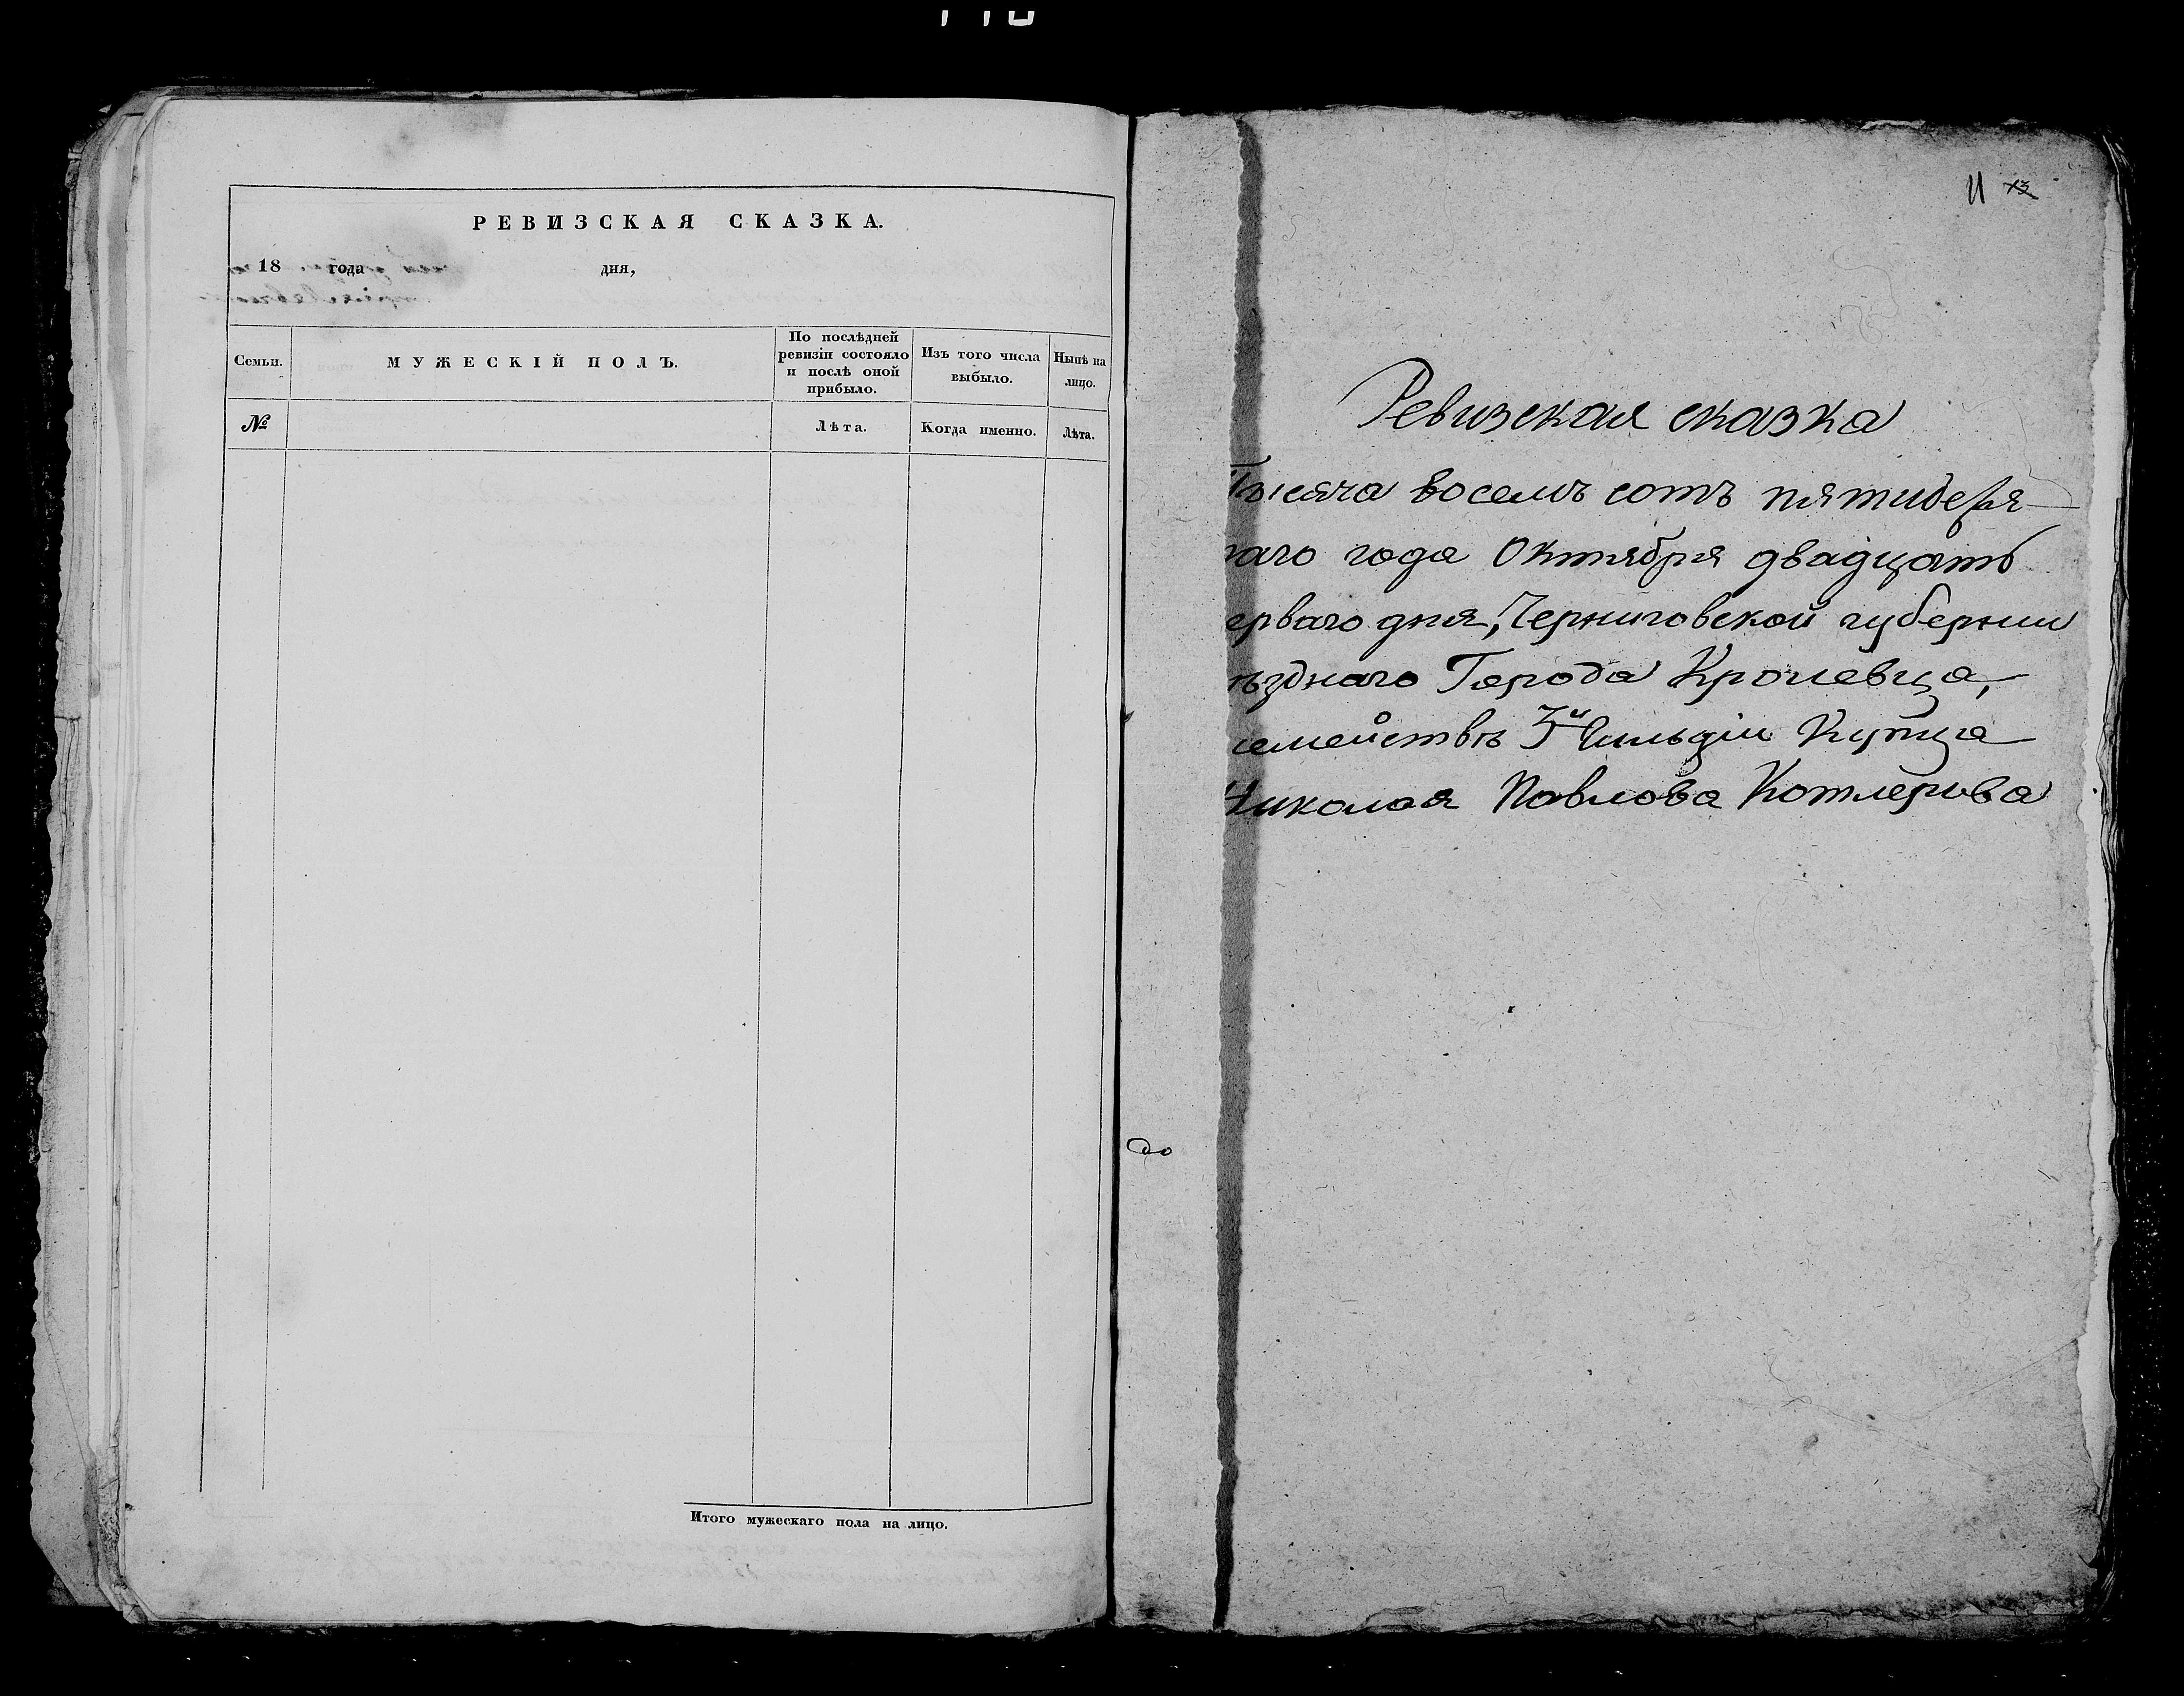 РЕВИЗСКАЯ СКАЗКА.
18 года дня,
Семьи.
МУЖЕСКІЙ ПОЛЪ.
По послѣдней ревизіи состояло и послѣ оной прибыло.
Изъ того числа выбыло.
Нынѣ на лицо.
№
Лѣта.
Когда именно.
Лѣта.
Итого мужескаго пола на лицо.
до
11 13
Ревизская сказка
Тысяча восемъ сотъ пятидеся
таго года Октября двадцать
ерваго дня, Черниговской губернии
ѣзднаго Города Кролевца,
семействѣ 3й Гильдіи Купца
Николая Павлова Котлерова